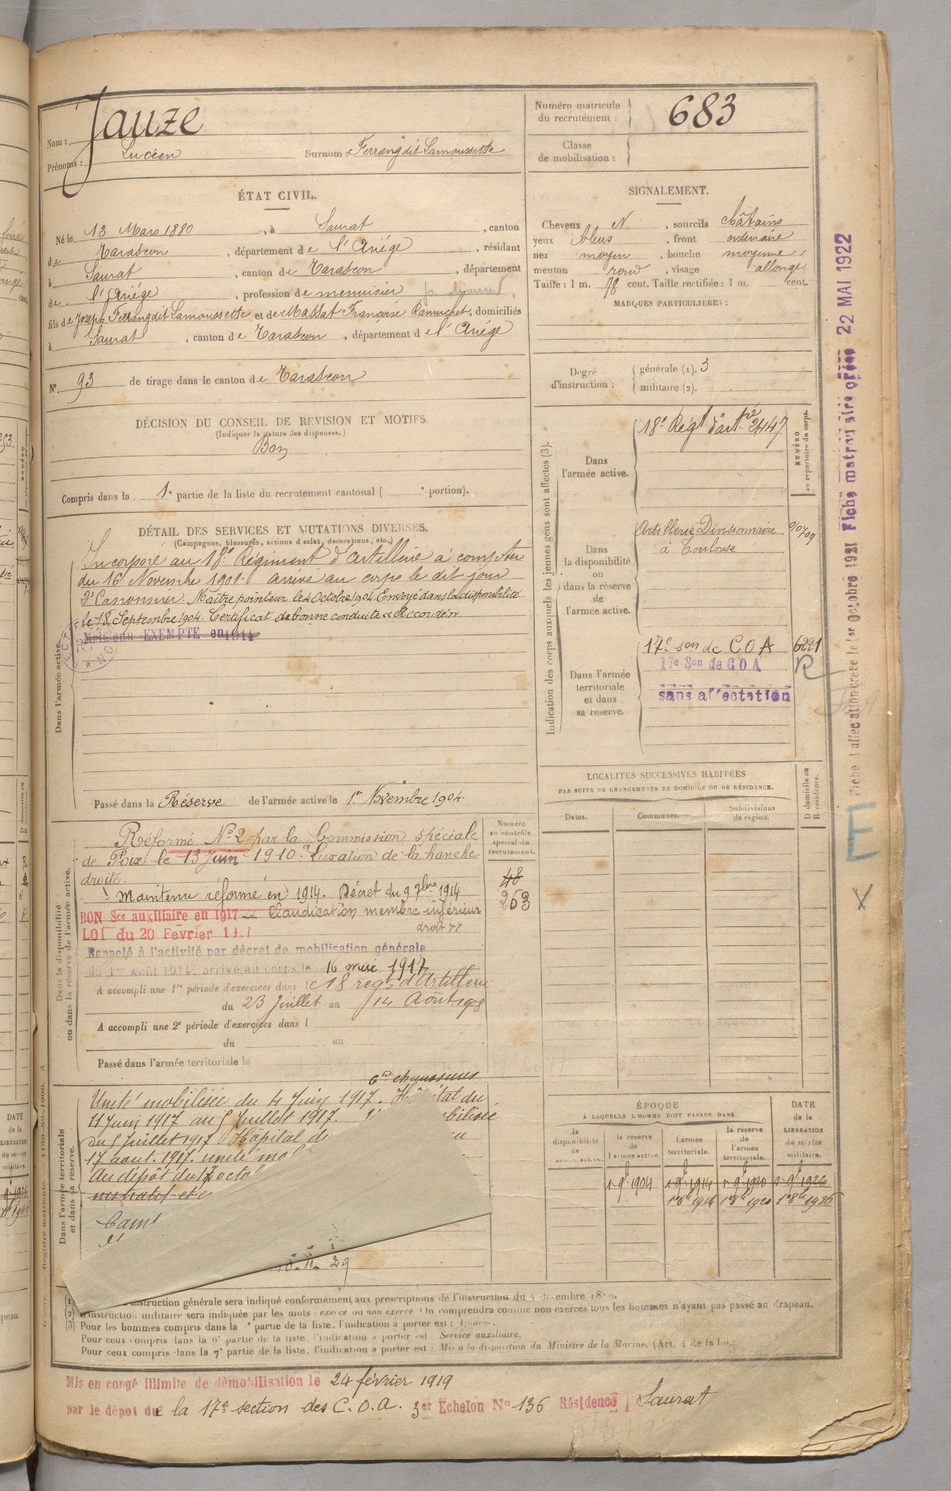 Nom : Jauze
Prénoms : Lucien Surnom : Ferrang dit Lamoussette
Numéro matricule du recrutement : 683
Classe de mobilisation :
ÉTAT CIVIL.
Né le 13 Mars 1880, à Saurat, canton
de Tarascon, département de l'Ariége, résidant
à Saurat, canton de Tarascon, département
de l'Ariége, profession de menuisier
fils de Joseph Ferrang dit Lamoussette et de Massat Françoise, domiciliés
à Saurat, canton de Tarascon, département de l'Ariége
N° 93 de tirage dans le canton de Tarascon
DÉCISION DU CONSEIL DE REVISION ET MOTIFS.
(Indiquer la nature des dispenses.)
Bon
Compris dans la 1e partie de la liste du recrutement cantonal ( e portion).
DÉTAIL DES SERVICES ET MUTATIONS DIVERSES.
(Campagnes, blessures, actions d'éclat, décorations, etc.)
Incorporé au 18e Régiment d'Artillerie à compter
du 16 Novembre 1901. arrivé au corps le dit jour
2e Canonnier. Maître pointeur le 4 Octobre 1904. Envoyé dans la disponibilité
le 18 Septembre 1904. Certificat de bonne conduite "Accordé"
Maintenu EXEMPTÉ en 1914
Dans l'armée active.
Passé dans la Réserve de l'armée active le 1er Novembre 1904
Numéro au contrôle spécial du recrutement.
48
263
Dans la disponibilité ou dans la réserve de l'armée active.
Réformé No 2 par la Commission spéciale
de Foix le 13 Juin 1910. Luxation de la hanche
droite.
Maintenu réformé en 1914. Décret du 9 7bre 1914
BON Sce auxiliaire en 1917 Claudication membre inférieur
LOI du 20 Février 1917 droit
Rappelé à l'activité par décret de mobilisation générale
du 1er Août 1914. arrivé au corps le 16 mai 1917
A accompli une 1re période d'exercices dans le 18 reg. d'Artillerie
du 23 Juillet au 14 Août 1908
A accompli une 2e période d'exercices dans l
du au
Passé dans l'armée territoriale le
Dans l'armée territoriale et dans sa réserve.
Unité mobilisée du 4 Juin 1917. Hôpital du
11 Juin 1917 au 5 Juillet 1917.
du 5 Juillet 1917 Hôpital
17 aout. 1917.
au dépôt du
29
SIGNALEMENT.
Cheveux N, sourcils châtains
yeux bleus, front ordinaire
nez moyen, bouche moyenne
menton rond, visage allongé
Taille : 1 m. 78 cent. Taille rectifiée : 1 m. cent.
MARQUES PARTICULIÈRES :
Degré d'instruction : générale (1). 3
militaire (2).
Indication des corps auxquels les jeunes gens sont affectés (3).
NUMÉRO au répertoire du corps.
Dans l'armée active.
18e Régt d'art. 2447
Dans la disponibilité ou dans la réserve de l'armée active.
Artillerie Divisionnaire
à Toulouse
Dans l'armée territoriale et dans sa réserve.
17e son de C O A 6221
17e Son de C O A
sans affectation
LOCALITÉS SUCCESSIVES HABITÉES
PAR SUITE DE CHANGEMENTS DE DOMICILE OU DE RÉSIDENCE.
Dates. Communes. Subdivisions de région. D domicile ou R résidence.
ÉPOQUE
À LAQUELLE L'HOMME DOIT PASSER DANS
la disponibilité. la réserve de l'armée active. l'armée territoriale. la réserve de l'armée territoriale.
DATE de la LIBÉRATION du service militaire.
Pour les hommes compris dans la e partie de la liste, l'indication à porter est :
Pour ceux compris dans la 6e partie de la liste, l'indication à porter est : Service auxiliaire.
Pour ceux compris dans la 7e partie de la liste, l'indication à porter est : Mis à la disposition du Ministre de la Marine. (Art. 4 de la loi.)
Mis en congé illimité de démobilisation le 24 février 1919
par le dépôt de la 17e section des C. O. A. 3er Echelon No 136 Résidence Saurat
22 MAI 1922
E